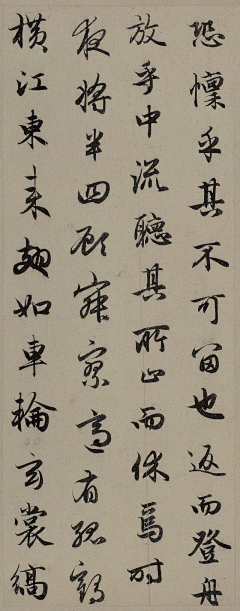 恐懍乎其不可留也返而登舟
放乎中流聽其所止而休焉时
夜将半四顾寂寥适有孤鹤
横江東来翅如車輪玄裳縞